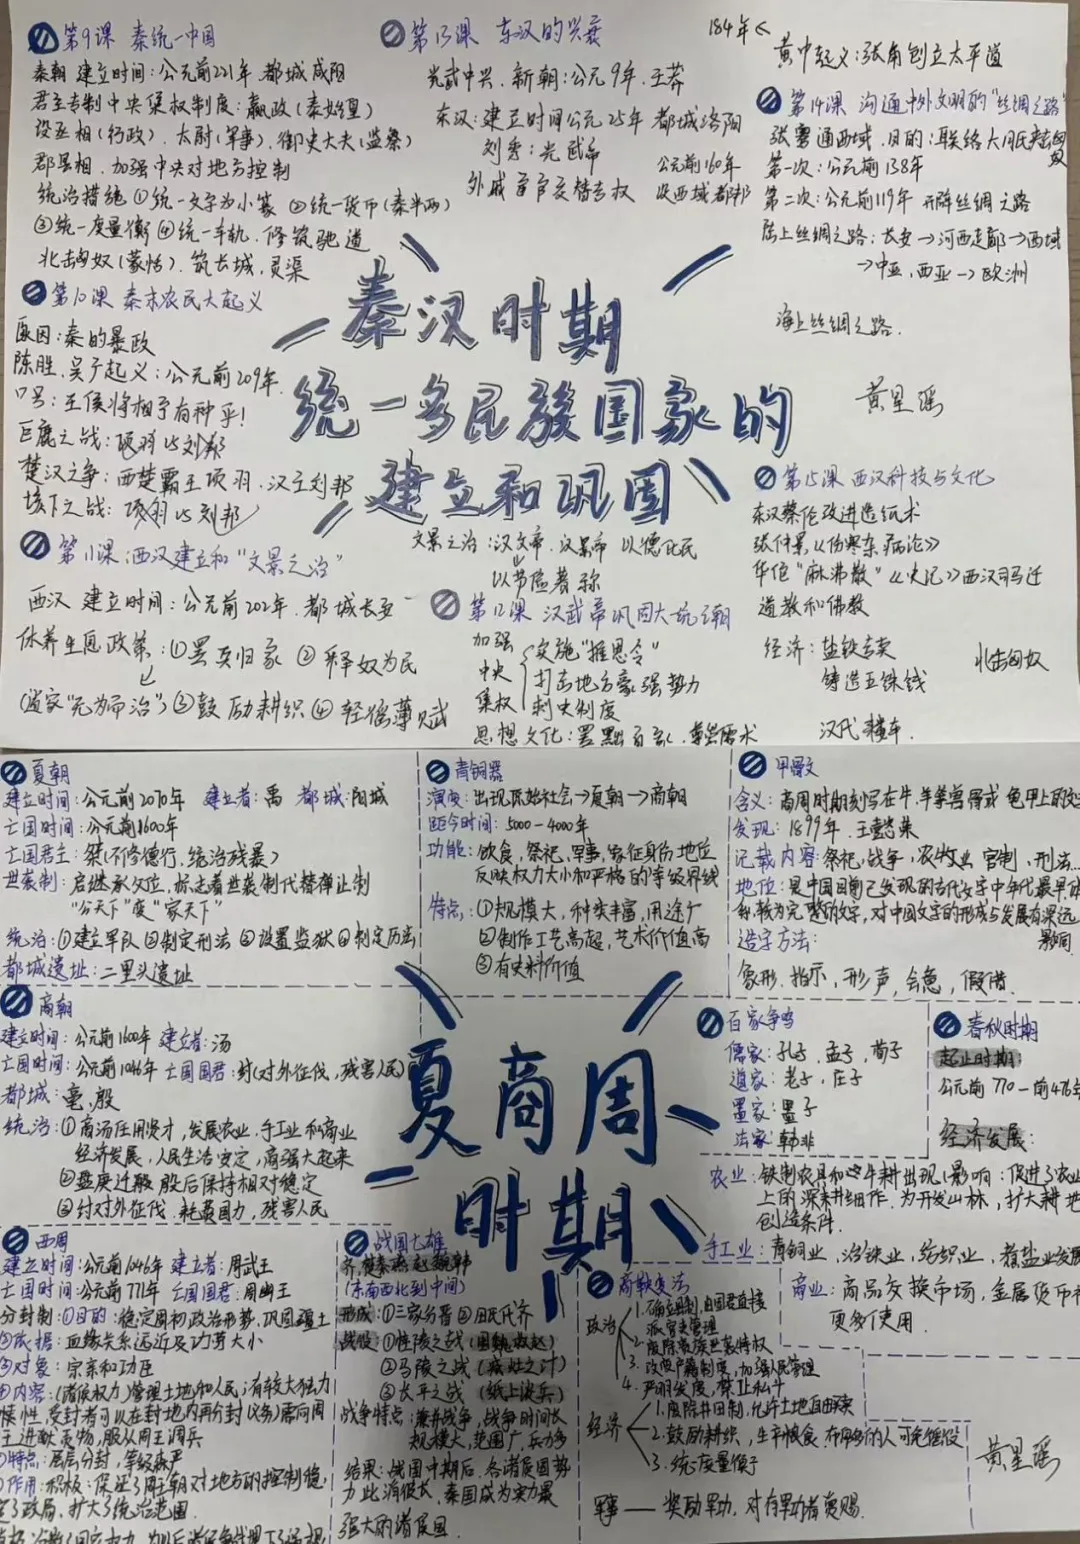 第9课 秦统一中国
秦朝 建立时间:公元前221年 都城咸阳
君主专制中央集权制度:嬴政(秦始皇)
设丞相(行政)、太尉(军事)、御史大夫(监察)
郡县相、加强中央对地方控制
统治措施 ①统一文字为小篆 ②统一货币(秦半两)
③统一度量衡 ④统一车轨、修筑驰道
北击匈奴(蒙恬)、筑长城,灵渠
第10课 秦末农民大起义
原因:秦的暴政
陈胜、吴广起义:公元前209年
口号:王侯将相宁有种乎!
巨鹿之战:项羽vs刘邦
楚汉之争:西楚霸王项羽、汉王刘邦
垓下之战:项羽vs刘邦
第11课:西汉建立和“文景之治”
西汉 建立时间:公元前202年、都城长安
休养生息政策:①罢兵归家 ②释奴为民
(道家“无为而治”)③鼓励耕织④轻徭薄赋
第13课 东汉的兴衰
光武中兴、新朝:公元9年、王莽
东汉:建立时间公元25年 都城洛阳
刘秀:光武帝
外戚宦官交替专权
公元前160年
设西域都护
184年<
黄中起义:张角创立太平道
第14课 沟通中外文明的“丝绸之路”
张骞通西域、目的:联络大月氏夹击匈奴
第一次:公元前138年
第二次:公元前119年 开辟丝绸之路
陆上丝绸之路:长安→河西走廊→西域
→中亚、西亚→欧洲
海上丝绸之路.
秦汉时期
统一多民族国家的
建立和巩固
黄星瑶
文景之治:汉文帝、汉景帝 以德化民
以节俭著称
第12课 汉武帝巩固大一统王朝
加强
中央
集权
实施“推恩令”
打击地方豪强势力
刺史制度
思想文化:罢黜百家、尊崇儒术
第15课 西汉科技与文化
东汉蔡伦改进造纸术
张仲景《伤寒杂病论》
华佗“麻沸散”《史记》西汉司马迁
道教和佛教
经济:盐铁专卖
铸造五铢钱
北击匈奴
汉代耧车.
夏朝
建立时间:公元前2070年 建立者:禹 都城:阳城
亡国时间:公元前1600年
亡国君主:桀(不修德行、统治残暴)
世袭制:启继承父位,标志着世袭制代替禅让制
“公天下”变“家天下”
统治:①建立军队②制定刑法③设置监狱④制定历法
都城遗址:二里头遗址
青铜器
演变:出现原始社会→夏朝→商朝
距今时间:5000-4000年
功能:饮食,祭祀,军事,象征身份地位
反映权力大小和严格的等级界线
特点:①规模大,种类丰富,用途广
②制作工艺高超,艺术价值高
③有史料价值
甲骨文
含义:商周时期刻写在牛、羊等兽骨或龟甲上的
发现:1899年、王懿荣
记载内容:祭祀,战争,农牧业、官制,刑法...
地位:是中国目前已发现的古代文字中年代最早
较为完整的文字,对中国文字的形成与发展有深远
影响
造字方法:
象形、指示、形声、会意,假借.
商朝
建立时间:公元前1600年 建立者:汤
亡国时间:公元前1046年 亡国国君:纣(对外征伐,残害人民)
都城:亳、殷
统治:①商汤任用贤才,发展农业、手工业和商业
经济发展,人民生活安定,商强大起来
②盘庚迁殷 殷后保持相对稳定
③纣对外征伐、耗费国力、残害人民
夏商周
时期
百家争鸣
儒家:孔子、孟子、荀子
道家:老子、庄子
墨家:墨子
法家:韩非
春秋时期
起止时期:
公元前770-前476年
经济发展:
农业:铁制农具和牛耕出现(影响:促进了农业
上的深耕细作、为开发山林,扩大耕地
创造条件.
手工业:青铜业、冶铁业、纺织业、煮盐业发展
商业:商品交换市场,金属货币
更多使用.
西周
建立时间:公元前1046年 建立者:周武王
亡国时间:公元前771年 亡国国君:周幽王
分封制:①目的:稳定周初政治形势、巩固疆土
②依据:血缘关系远近及功劳大小
③对象:宗亲和功臣
④内容:(诸侯权力)管理土地和人民;有较大独立
性、受封者可以在封地内再分封(义务)需向周
王进献贡物,服从周王调兵
特点:层层分封,等级森严
作用:积极:保证了周王朝对地方的控制、稳
定了政局、扩大了统治范围
战国七雄
齐楚秦燕赵魏韩
(东南西北到中间)
形成:①三家分晋②田氏代齐
战役:①桂陵之战(围魏救赵)
②马陵之战(减灶之计)
③长平之战(纸上谈兵)
战争特点:兼并战争,战争时间长
规模大,范围广,兵力多
结果:战国中期后、各诸侯国势
力此消彼长、秦国成为实力最
强大的诸侯国.
商鞅变法
政治
1.确立县制,由国君直接
派官吏管理
2.废除贵族世袭特权
3.改革户籍制度,加强人民管理
4.严明法度,禁止私斗
经济
1.废除井田制,允许土地自由买卖
2.鼓励耕织,生产粮食、布帛多的人可免徭役
3.统一度量衡
军事——奖励军功,对有军功者赏赐.
黄星瑶